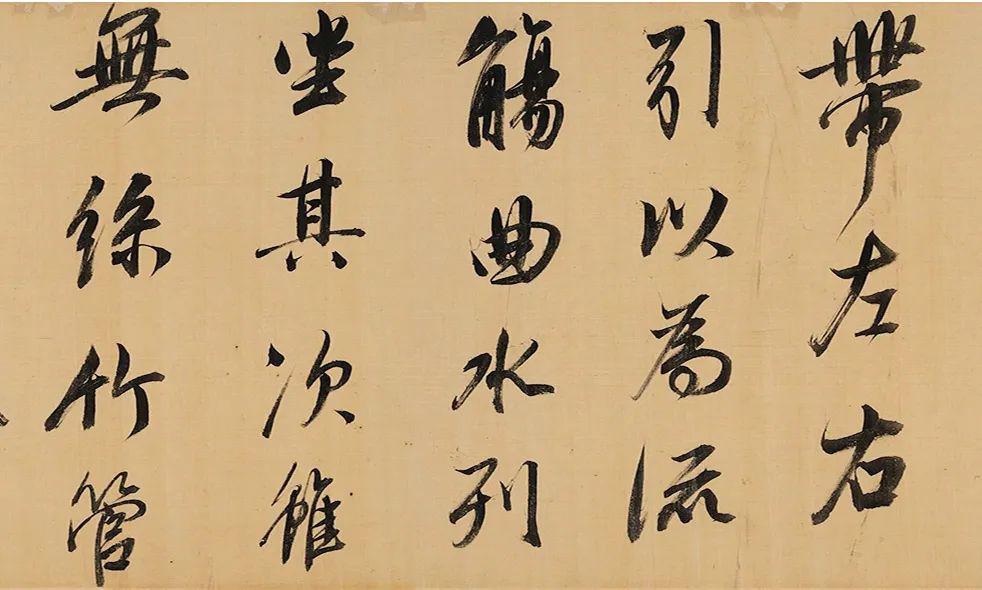 帶左右
引以為流
觴曲水列
坐其次雖
無絲竹管